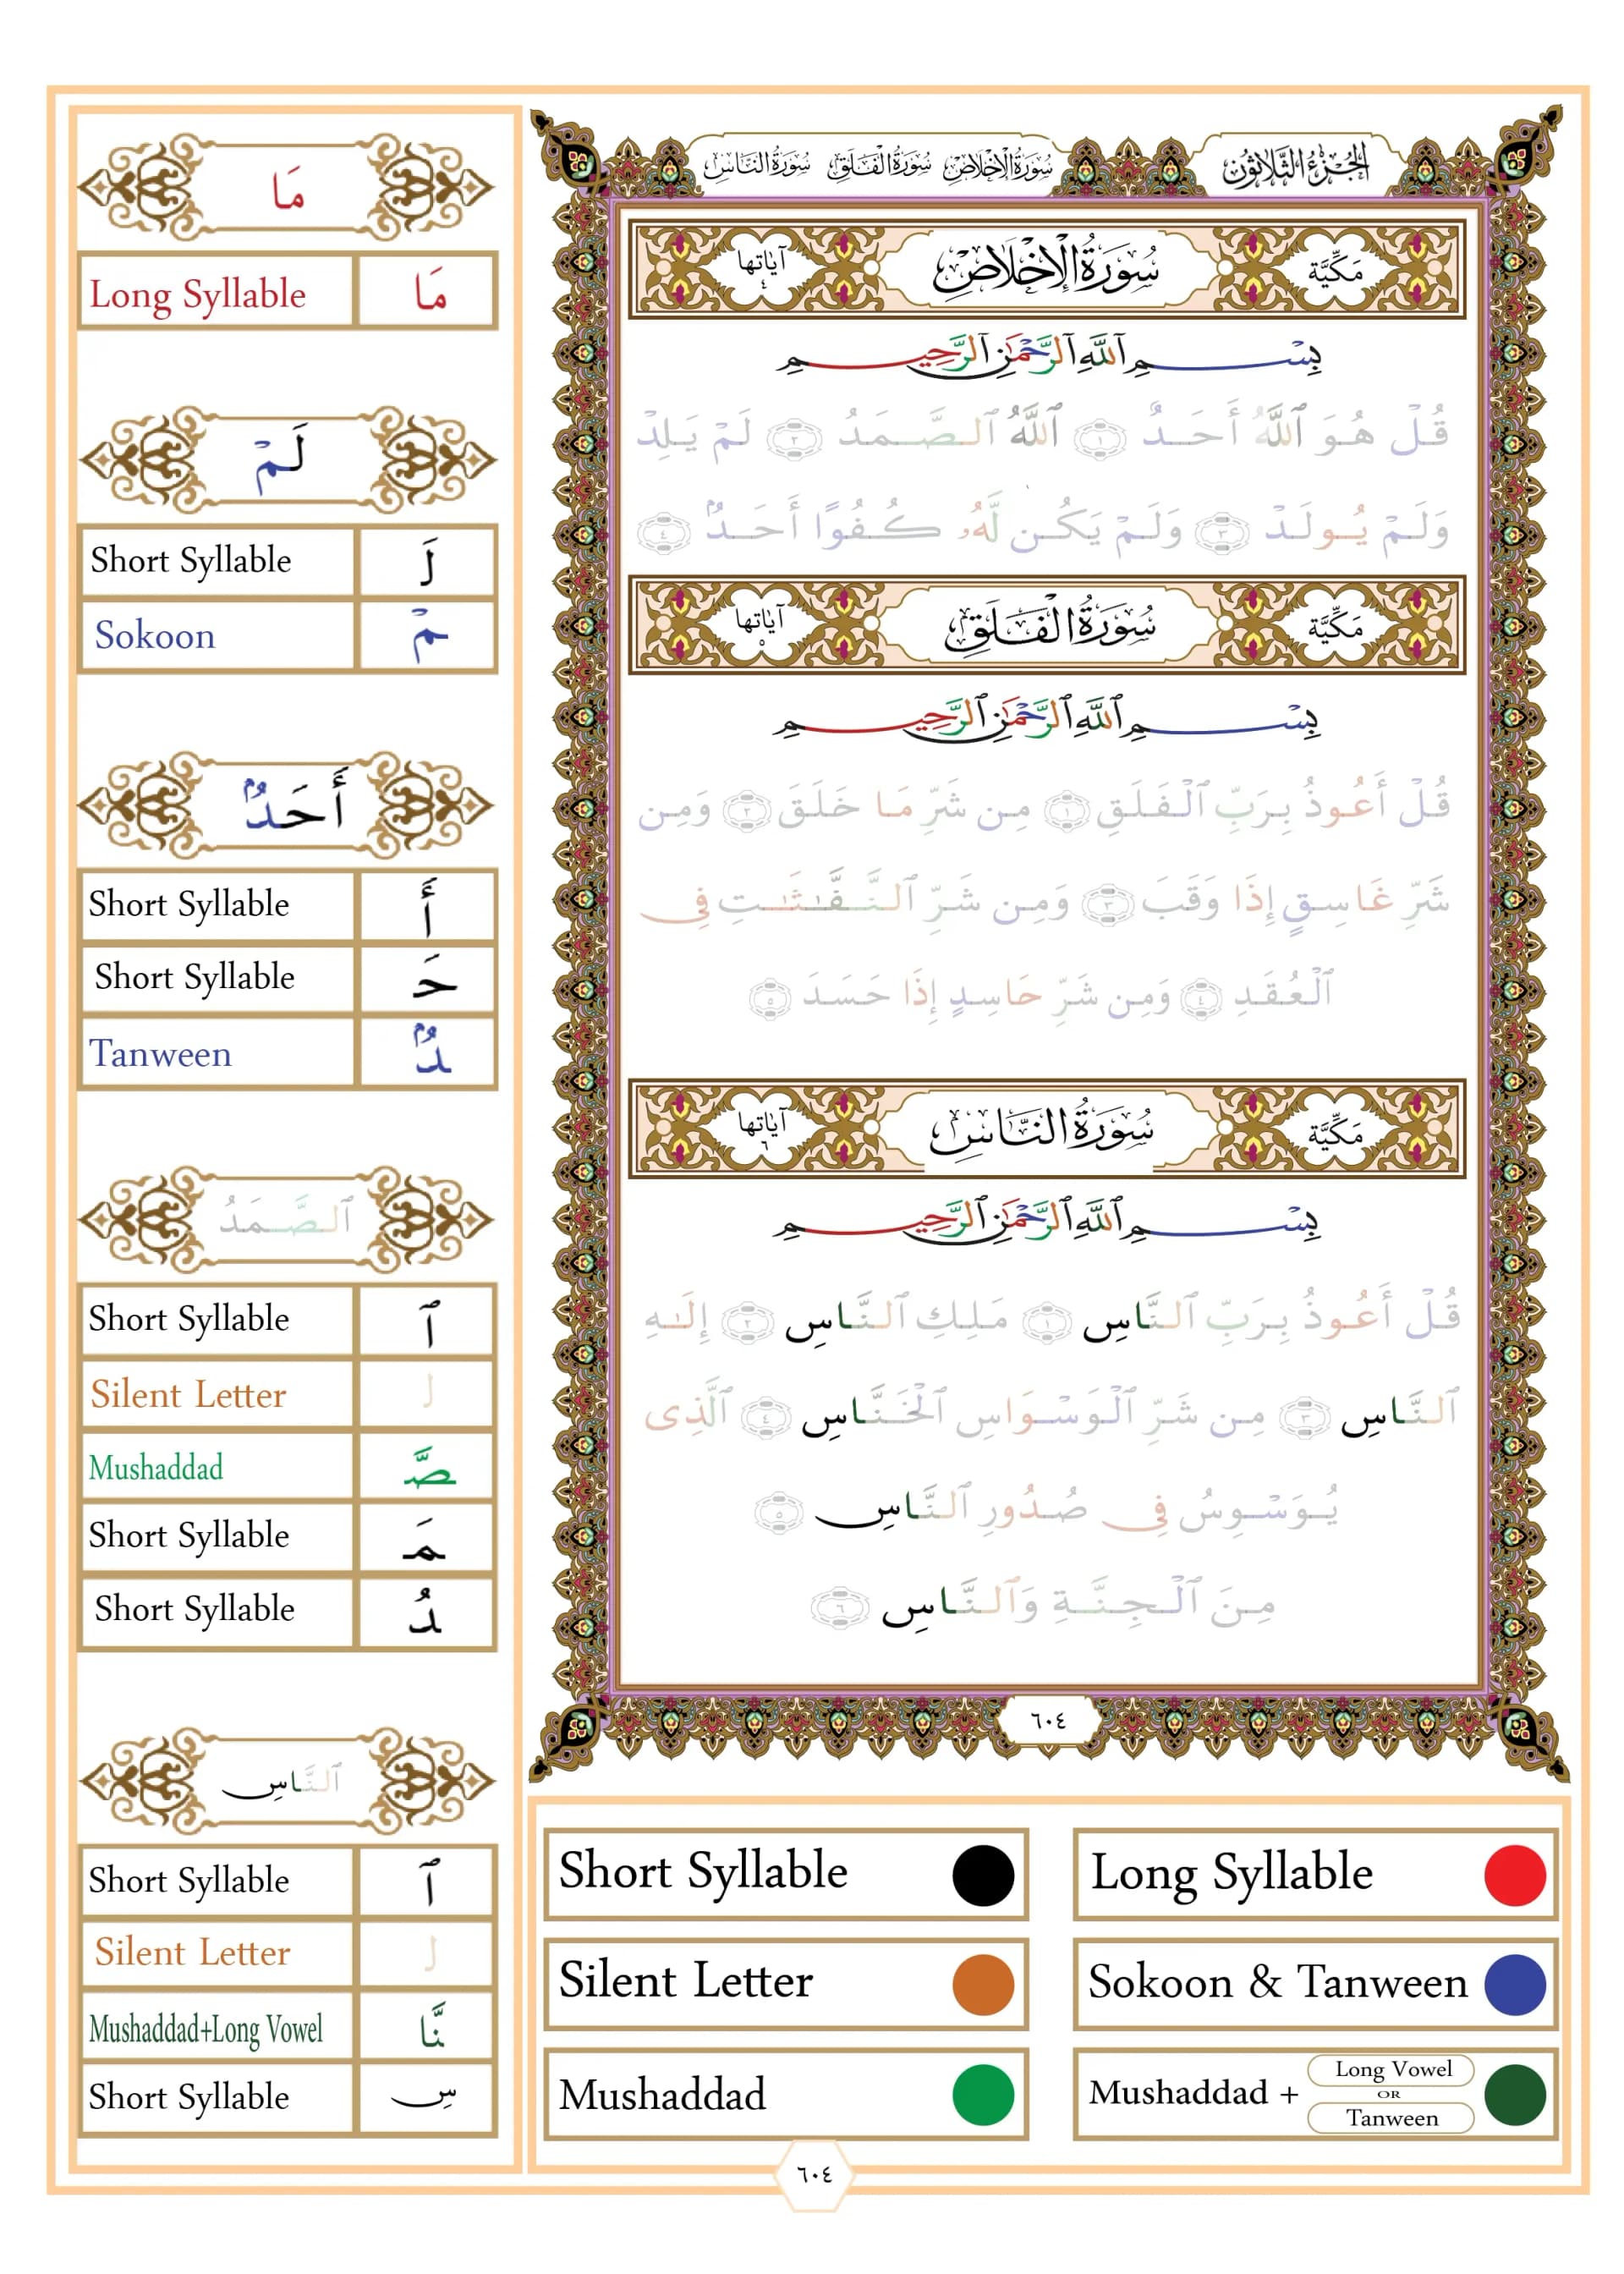 الجزء الثلاثون
سورة الإخلاص سورة الفلق سورة الناس
مكية
سورة الإخلاص
آياتها ٤
بِسْمِ ٱللَّهِ ٱلرَّحْمَٰنِ ٱلرَّحِيمِ
قُلْ هُوَ ٱللَّهُ أَحَدٌ ١ ٱللَّهُ ٱلصَّمَدُ ٢ لَمْ يَلِدْ
وَلَمْ يُولَدْ ٣ وَلَمْ يَكُن لَّهُۥ كُفُوًا أَحَدٌۢ ٤
مكية
سورة الفلق
آياتها ٥
بِسْمِ ٱللَّهِ ٱلرَّحْمَٰنِ ٱلرَّحِيمِ
قُلْ أَعُوذُ بِرَبِّ ٱلْفَلَقِ ١ مِن شَرِّ مَا خَلَقَ ٢ وَمِن
شَرِّ غَاسِقٍ إِذَا وَقَبَ ٣ وَمِن شَرِّ ٱلنَّفَّٰثَٰتِ فِى
ٱلْعُقَدِ ٤ وَمِن شَرِّ حَاسِدٍ إِذَا حَسَدَ ٥
مكية
سورة الناس
آياتها ٦
بِسْمِ ٱللَّهِ ٱلرَّحْمَٰنِ ٱلرَّحِيمِ
قُلْ أَعُوذُ بِرَبِّ ٱلنَّاسِ ١ مَلِكِ ٱلنَّاسِ ٢ إِلَٰهِ
ٱلنَّاسِ ٣ مِن شَرِّ ٱلْوَسْوَاسِ ٱلْخَنَّاسِ ٤ ٱلَّذِى
يُوَسْوِسُ فِى صُدُورِ ٱلنَّاسِ ٥
مِنَ ٱلْجِنَّةِ وَٱلنَّاسِ ٦
٦٠٤
مَا
Long Syllable مَا
لَمْ
Short Syllable لَ
Sokoon مْ
أَحَدٌۢ
Short Syllable أَ
Short Syllable حَ
Tanween دٌۢ
ٱلصَّمَدُ
Short Syllable ٱ
Silent Letter ل
Mushaddad صَّ
Short Syllable مَ
Short Syllable دُ
ٱلنَّاسِ
Short Syllable ٱ
Silent Letter ل
Mushaddad+Long Vowel نَّا
Short Syllable سِ
Short Syllable
Long Syllable
Silent Letter
Sokoon & Tanween
Mushaddad
Mushaddad + Long Vowel OR Tanween
٦٠٤